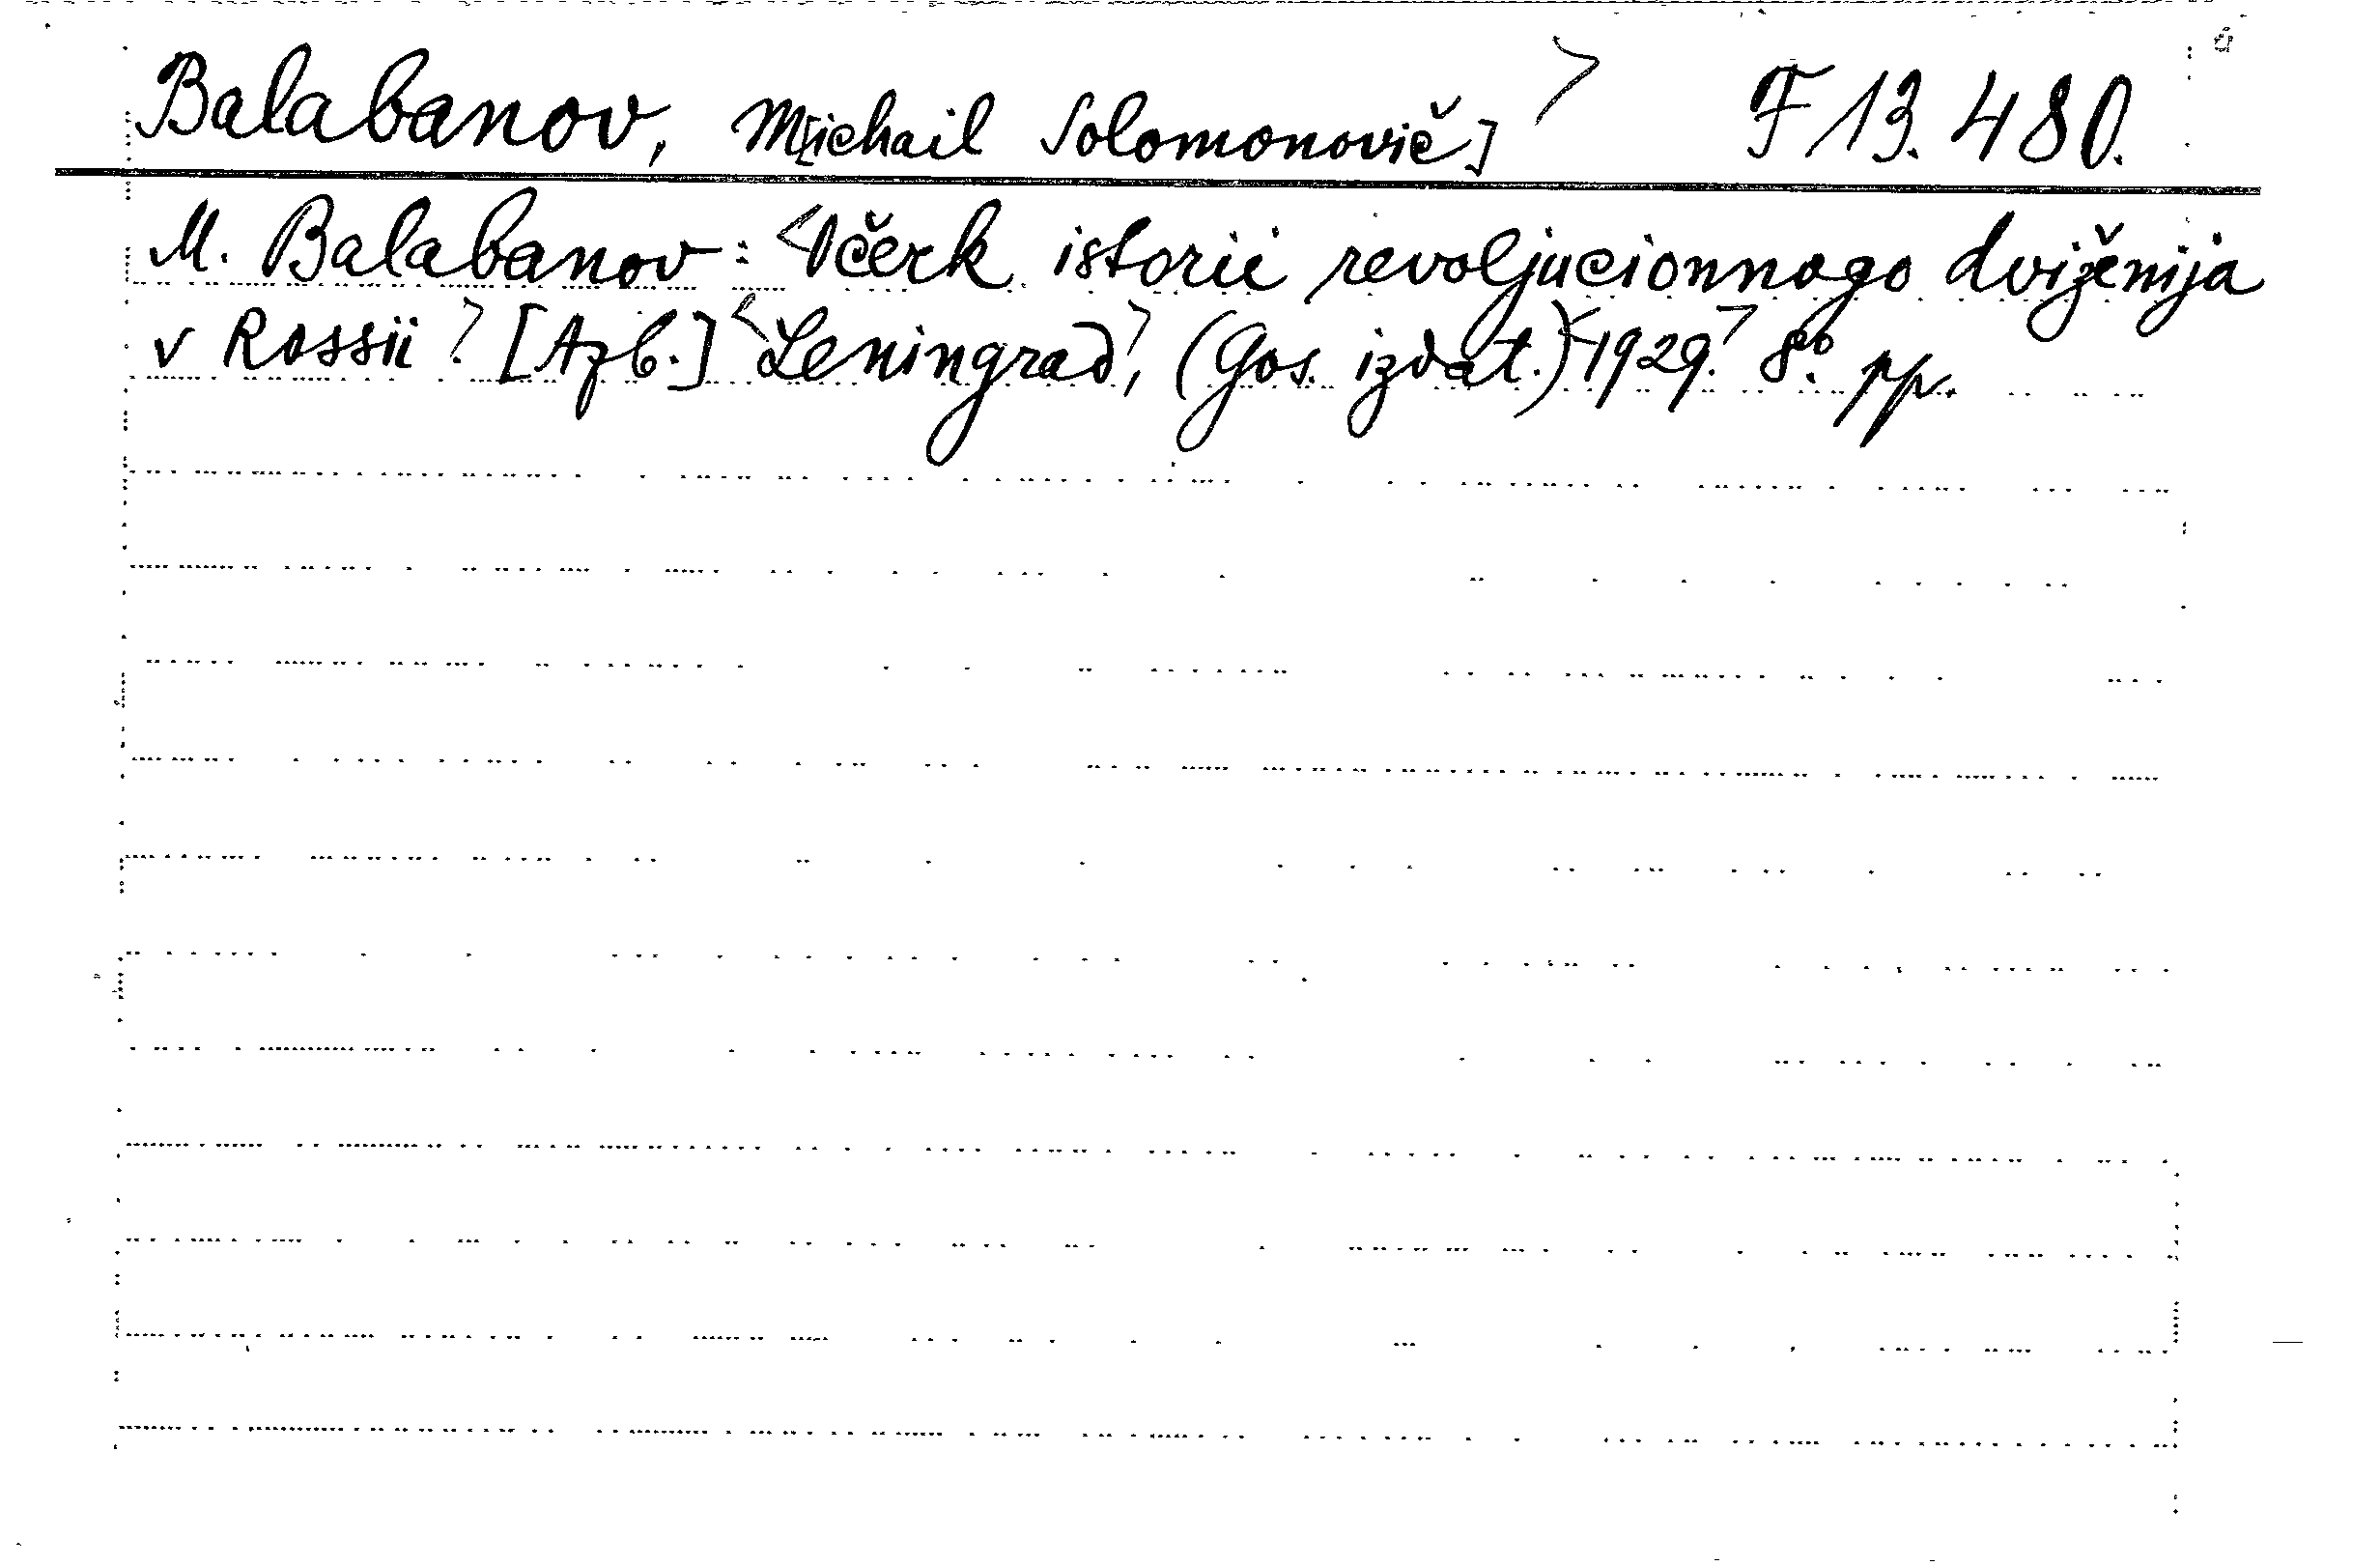 Balabanov, M[ichail Solomonovič] > F 13.480.
M. Balabanov: <Očerk istorii revoljucionnogo dviženija
v Rossii.> [Azb.] <Leningrad>, (Gos. izdat.) <1929.> 8° pp.